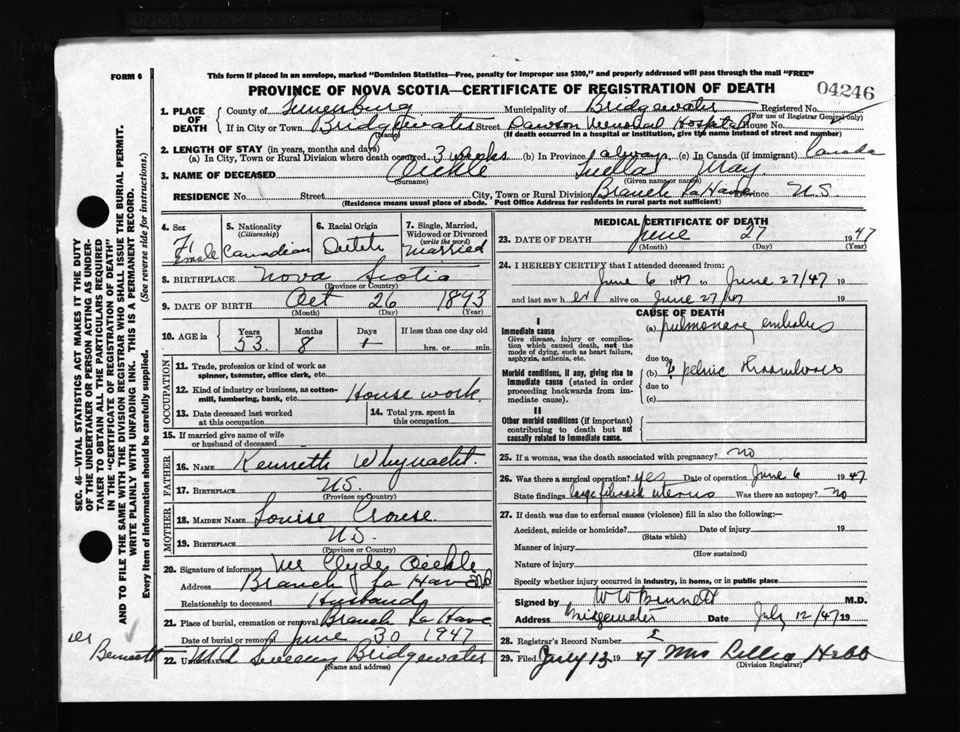 FORM 6
This form if placed in an envelope, marked "Dominion Statistics—Free, penalty for improper use $300," and properly addressed will pass through the mail "FREE"
PROVINCE OF NOVA SCOTIA—CERTIFICATE OF REGISTRATION OF DEATH
04246
1. PLACE OF DEATH
County of Lunenburg Municipality of Bridgewater Registered No.
(For use of Registrar General only)
If in City or Town Bridgewater Street Dawson Memorial Hospital House No.
(Name) (If death occurred in a hospital or institution, give the name instead of street and number)
2. LENGTH OF STAY (in years, months and days)
(a) In City, Town or Rural Division where death occurred 3 weeks (b) In Province always (c) In Canada (if immigrant) Canada
3. NAME OF DECEASED Oickle Luella May
(Surname) (Given name or names)
RESIDENCE No. Street City, Town or Rural Division Branch La Have Province N.S.
(Residence means usual place of abode. Post Office Address for residents in rural parts not sufficient)
4. Sex Female
5. Nationality (Citizenship) Canadian
6. Racial Origin Dutch
7. Single, Married, Widowed or Divorced (write the word) Married
8. BIRTHPLACE Nova Scotia
(Province or Country)
9. DATE OF BIRTH Oct 26 1893
(Month) (Day) (Year)
10. AGE Years 53 Months 8 Days 1 If less than one day old hrs. or min.
OCCUPATION
11. Trade, profession or kind of work as spinner, teamster, office clerk, etc.
12. Kind of industry or business, as cotton-mill, lumbering, bank, etc. House work
13. Date deceased last worked at this occupation
14. Total yrs. spent in this occupation
15. If married give name of wife or husband of deceased
FATHER
16. NAME Kenneth Whynacht
17. BIRTHPLACE N.S.
(Province or Country)
MOTHER
18. MAIDEN NAME Louise Crouse
19. BIRTHPLACE N.S.
(Province or Country)
20. Signature of informant Mr Clyde Oickle
Address Branch La Have
Relationship to deceased Husband
21. Place of burial, cremation or removal Branch La Have
Date of burial or removal June 30 1947
Bennett
22. UNDERTAKER Sweeny Bridgewater
(Name and address)
MEDICAL CERTIFICATE OF DEATH
23. DATE OF DEATH June 27 1947
(Month) (Day) (Year)
24. I HEREBY CERTIFY that I attended deceased from:
June 6 1947 to June 27/47 19
and last saw her alive on June 27/47 19
CAUSE OF DEATH
I
Immediate cause
Give disease, injury or complication which caused death, not the mode of dying, such as heart failure, asphyxia, asthenia, etc.
(a) pulmonary embolus
due to
Morbid conditions, if any, giving rise to immediate cause (stated in order proceeding backwards from immediate cause).
(b) pelvic thrombosis
due to
(c)
II
Other morbid conditions (if important) contributing to death but not causally related to immediate cause.
25. If a woman, was the death associated with pregnancy? no
26. Was there a surgical operation? yes Date of operation June 6 1947
State findings large fibroid uterus Was there an autopsy? No
27. If death was due to external causes (violence) fill in also the following:—
Accident, suicide or homicide? Date of injury 19
(State which)
Manner of injury
(How sustained)
Nature of injury
Specify whether injury occurred in industry, in home, or in public place
Signed by W W Bennett M.D.
Address Bridgewater Date July 12/47 19
28. Registrar's Record Number
29. Filed July 13 1947 Mrs Lillia Hebb
(Division Registrar)
SEC. 46—VITAL STATISTICS ACT MAKES IT THE DUTY
OF THE UNDERTAKER OR PERSON ACTING AS UNDERTAKER TO OBTAIN ALL THE PARTICULARS REQUIRED
IN THE "CERTIFICATE OF REGISTRATION OF DEATH"
AND TO FILE THE SAME WITH THE DIVISION REGISTRAR WHO SHALL ISSUE THE BURIAL PERMIT.
WRITE PLAINLY WITH UNFADING INK. THIS IS A PERMANENT RECORD.
Every item of information should be carefully supplied. (See reverse side for instructions.)